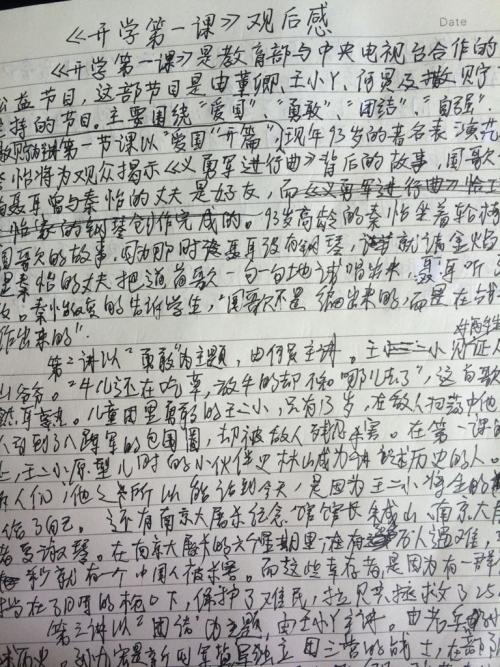 《开学第一课》观后感
Date
《开学第一课》是教育部与中央电视台合作的
公益节目，这部节目是由董卿、王小丫、何炅及撒贝宁
持的节目。主要围绕“爱国”、“勇敢”、“团结”、“自强”
第一节课以“爱国”开篇，现年93岁的著名表演艺
怡将为观众揭示《义勇军进行曲》背后的故事，国歌
聂耳曾与秦怡的丈夫是好友，而《义勇军进行曲》恰
怡家的钢琴创作完成的。93岁高龄的秦怡坐着轮椅
国歌的故事，因为那时候聂耳没有钢琴，就请金焰
秦怡的丈夫把这首歌一句一句地试唱出来，聂耳听
。秦怡的告诉学生，“国歌不是编出来的，而是在战
作出来的”。
第二讲以“勇敢”为主题，由何炅主讲。王二小见证人
山爷爷。“牛儿还在吃草，放牛的却不知哪儿去了”，这首歌
熟耳熟。儿童团里勇敢的王二小，只有13岁，在敌人扫荡中他
人引到了八路军的包围圈，却被敌人残忍杀害。在第一课的
上，王二小原型儿时的小伙伴史林山成为讲述历史的人。
人们，他之所以能活到今天，是因为王二小将生的
给了自己。还有南京大屠杀纪念馆馆长朱成山、南京大屠
者夏淑琴。在南京大屠杀的六个星期里，万人遇难，
秒就有一个中国人被杀害。而这些幸存者，是因为有一群
挡在了日军的枪口下，保护了难民，拉贝拯救了25
第三讲以“团结”为主题，由王小丫主讲。由老兵
孙力宏是新四军独立团三营的战士，在部